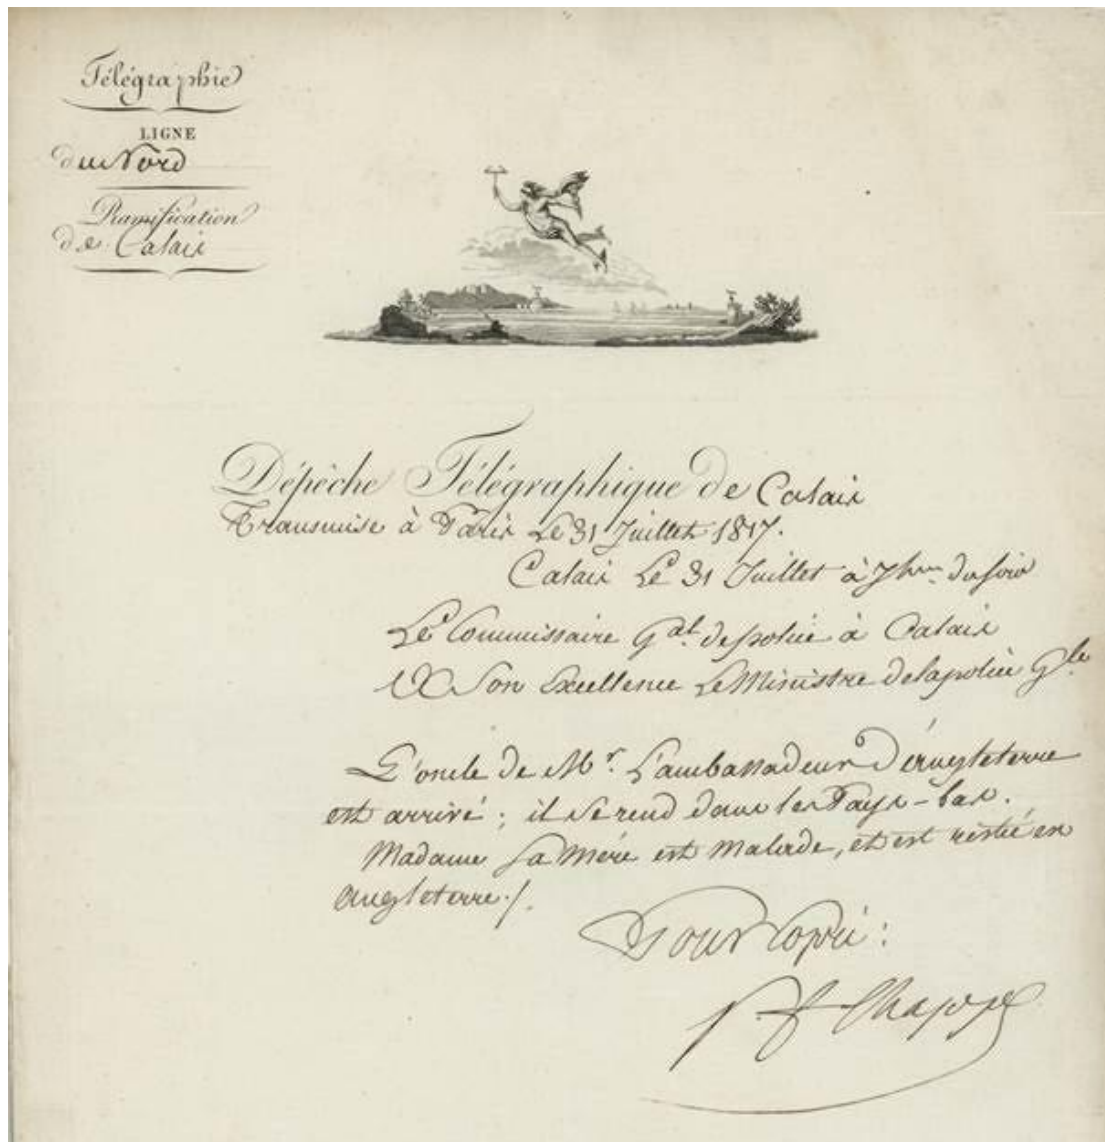 Télégraphie
LIGNE
du Nord
Ramification
de Calais
Dépêche Télégraphique de Calais
Transmise à Paris Le 31 Juillet 1817.
Calais Le 31 Juillet à 7h du soir
Le Commissaire Gal. de police à Calais
A Son Excellence Le Ministre de la police Gle
L'oncle de Mr. L'ambassadeur d'angleterre
est arrivé ; il se rend dans les Pays-bas.
Madame Sa Mére est Malade, et est restée en
angleterre ./.
Pour Copie :
Chappe